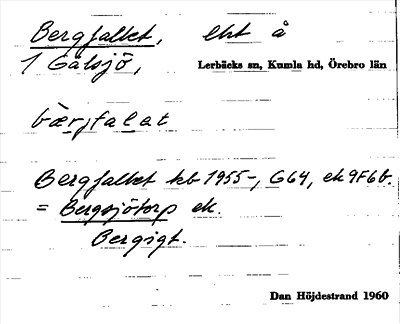 Bergfallet, lht å
1 Gälsjö, Lerbäcks sn, Kumla hd, Örebro län
bæ̀rjfalat
Bergfallet kb 1955-, G64, ek 9F6b.
= Bergsjötorp ek.
Bergigt.
Dan Höjdestrand 1960